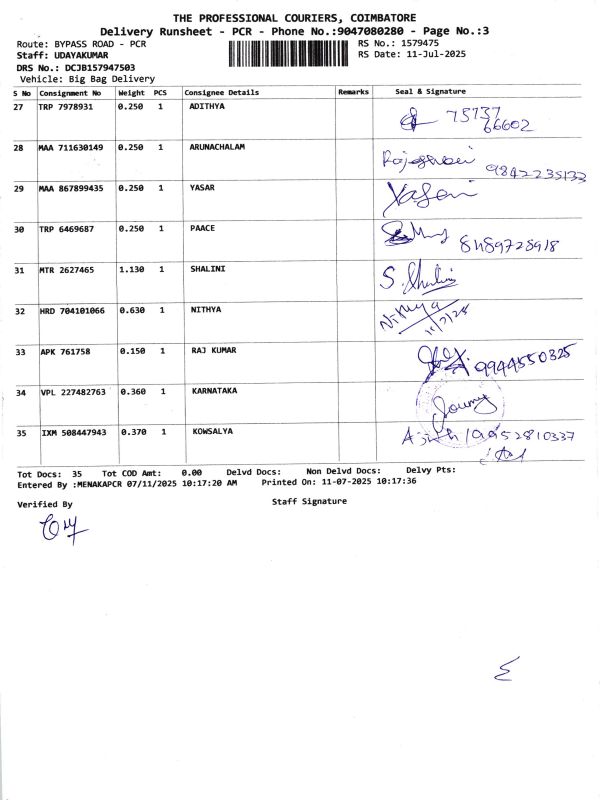 THE PROFESSIONAL COURIERS, COIMBATORE
Delivery Runsheet - PCR - Phone No.:9047080280 - Page No.:3
Route: BYPASS ROAD - PCR RS No.: 1579475
Staff: UDAYAKUMAR RS Date: 11-Jul-2025
DRS No.: DCJB157947503
Vehicle: Big Bag Delivery
S No Consignment No Weight PCS Consignee Details Remarks Seal & Signature
27 TRP 7978931 0.250 1 ADITHYA 75737
66602
28 MAA 711630149 0.250 1 ARUNACHALAM 9842235133
29 MAA 867899435 0.250 1 YASAR
30 TRP 6469687 0.250 1 PAACE 8489728918
31 MTR 2627465 1.130 1 SHALINI S. Shalini
32 HRD 704101066 0.630 1 NITHYA Nithya
11/7/25
33 APK 761758 0.150 1 RAJ KUMAR 9944550325
34 VPL 227482763 0.360 1 KARNATAKA
35 IXM 508447943 0.370 1 KOWSALYA Ajith
Tot Docs: 35 Tot COD Amt: 0.00 Delvd Docs: Non Delvd Docs: Delvy Pts:
Entered By :MENAKAPCR 07/11/2025 10:17:20 AM Printed On: 11-07-2025 10:17:36
Verified By Staff Signature